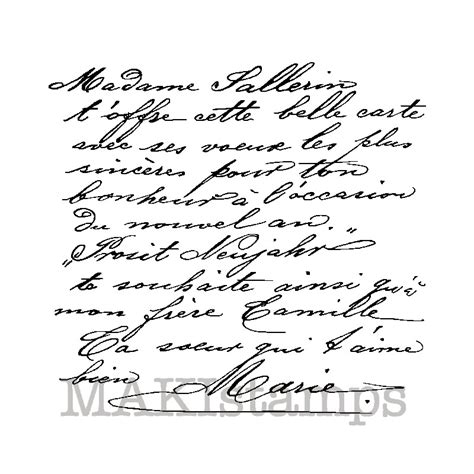 Madame Sallerin
t'offre cette belle carte
avec ses voeux les plus
sincères pour ton
bonheur à l'occasion
du nouvel an.
„Prosit Neujahr”
te souhaite ainsi qu'à
mon frère Camille
Ta soeur qui t'aime
bien Marie.
MAKIstamps